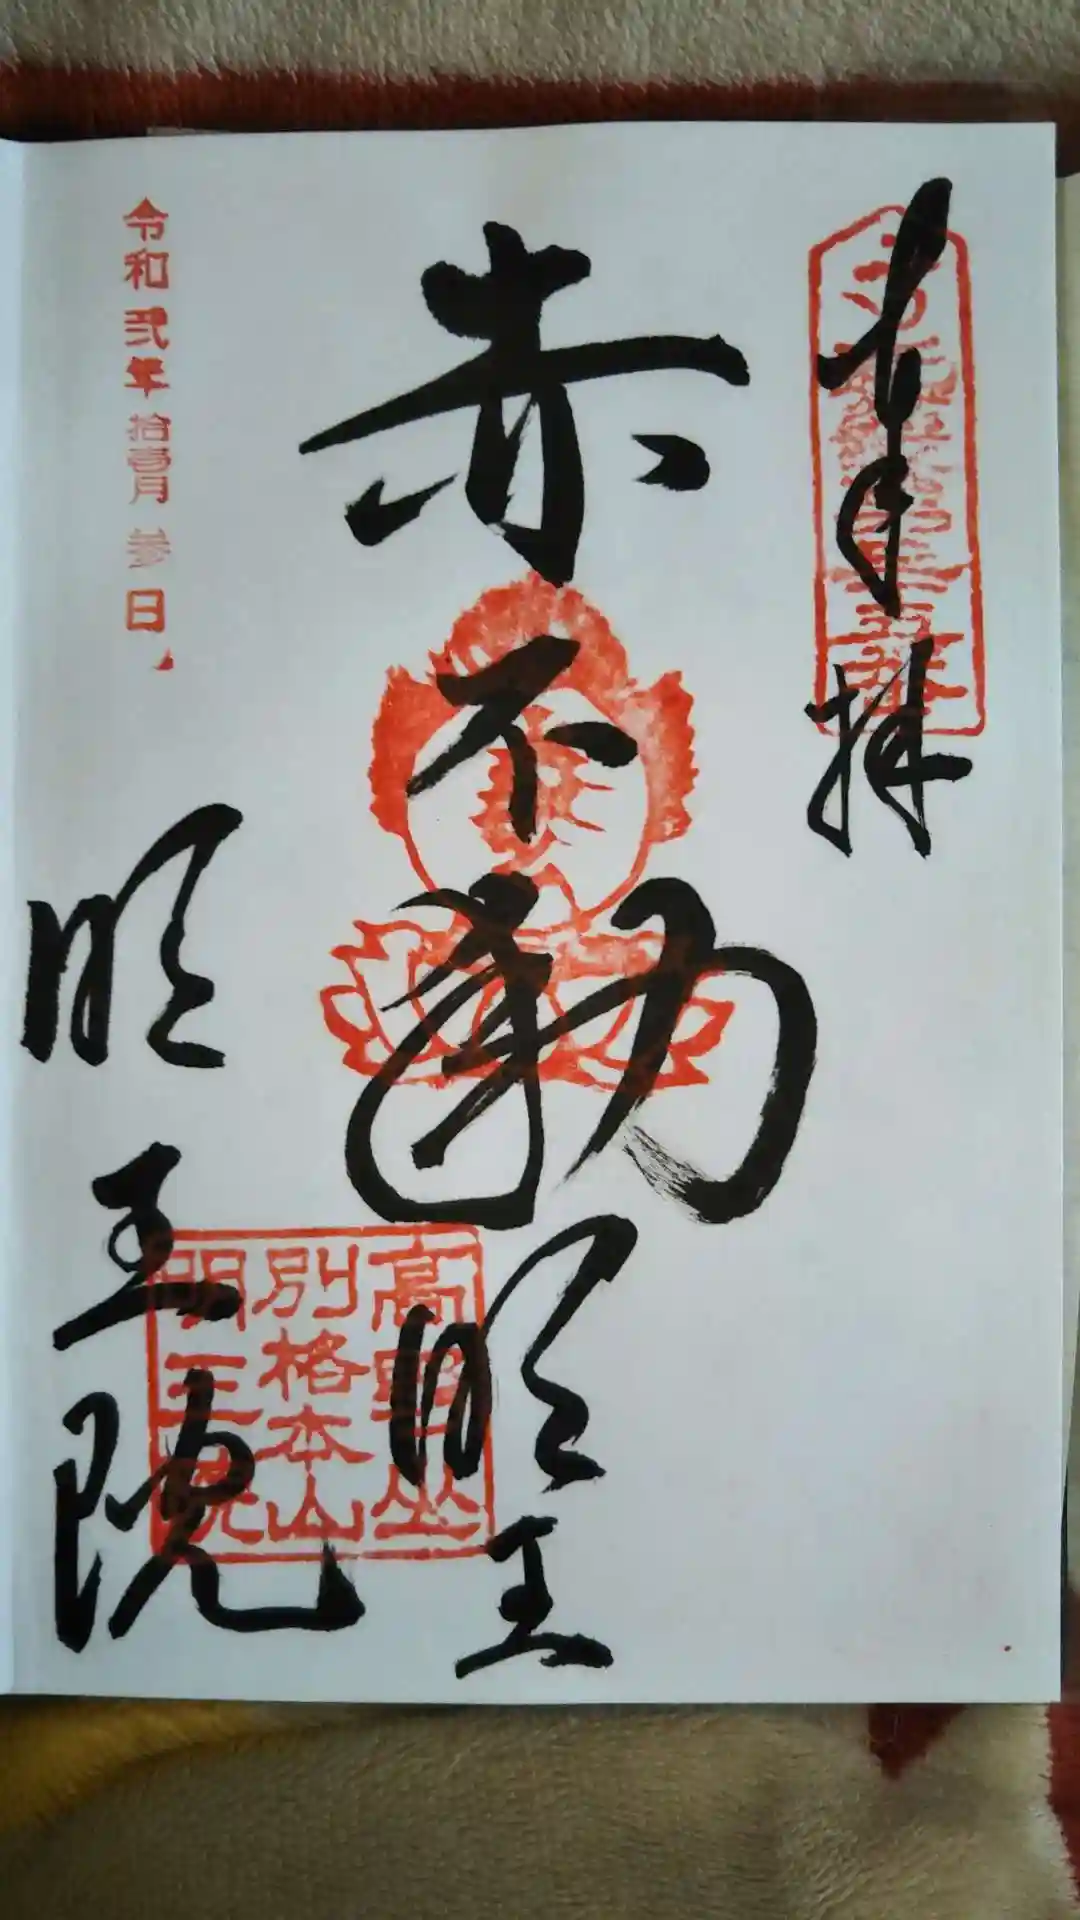 奉拝
赤不動
明王
明王院
令和弐年拾壹月参日
高野山
別格本山
明王院